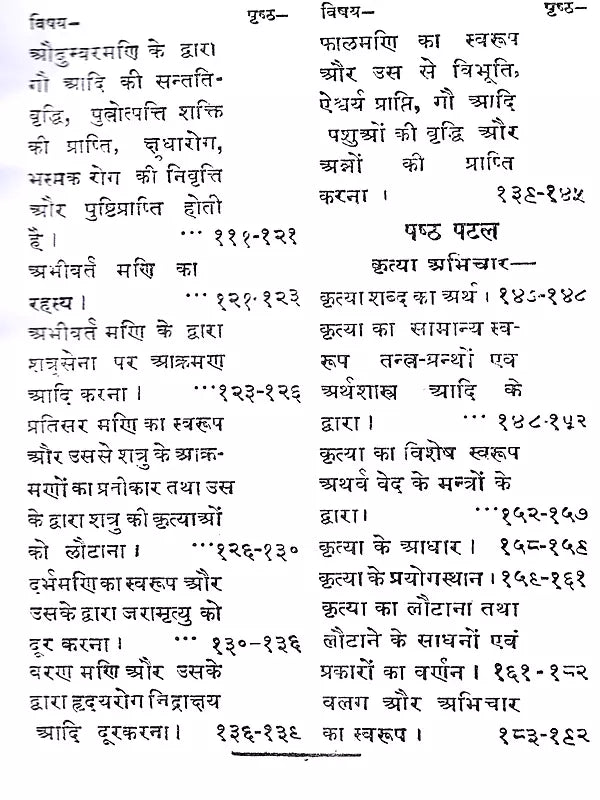 विषय— पृष्ठ—
औदुम्बरमणि के द्वारा
गौ आदि की सन्तति-
वृद्धि, पुत्रोत्पत्ति शक्ति
की प्राप्ति, क्षुधारोग,
भस्मक रोग की निवृत्ति
और पुष्टिप्राप्ति होती
है। ... १११-१२१
अभीवर्त मणि का
रहस्य। ... १२१-१२३
अभीवर्त मणि के द्वारा
शत्रुसेना पर आक्रमण
आदि करना। ...१२३-१२६
प्रतिसर मणि का स्वरूप
और उससे शत्रु के आक्र-
मणों का प्रतीकार तथा उस
के द्वारा शत्रु की कृत्याओं
को लौटाना। ...१२६-१३०
दर्भमणि का स्वरूप और
उसके द्वारा जरामृत्यु को
दूर करना। ... १३०-१३६
वरण मणि और उसके
द्वारा हृदयरोग निद्राक्षय
आदि दूरकरना। १३६-१३९
विषय— पृष्ठ—
फालमणि का स्वरूप
और उस से विभूति,
ऐश्वर्य प्राप्ति, गौ आदि
पशुओं की वृद्धि और
अन्नों की प्राप्ति
करना । १३९-१४५
षष्ठ पटल
कृत्या अभिचार—
कृत्या शब्द का अर्थ। १४७-१४८
कृत्या का सामान्य स्व-
रूप तन्त्र-ग्रन्थों एवं
अर्थशास्त्र आदि के
द्वारा। ... १४८-१५२
कृत्या का विशेष स्वरूप
अथर्व वेद के मन्त्रों के
द्वारा। ...१५२-१५७
कृत्या के आधार। १५८-१५९
कृत्या के प्रयोगस्थान। १५९-१६१
कृत्या का लौटाना तथा
लौटाने के साधनों एवं
प्रकारों का वर्णन। १६१-१८२
वलग और अभिचार
का स्वरूप। १८३-१९२